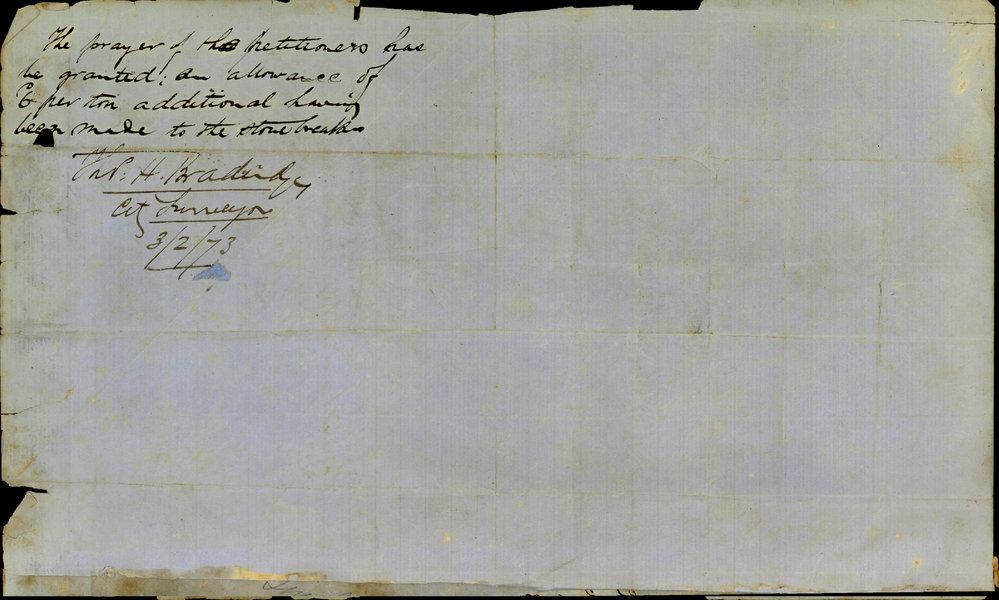 The prayer of the petitioners has
be granted; an allowance of
per ton additional having
been made to the stone breakers
Thos. H. Bradridge
City Surveyor
3/2/73